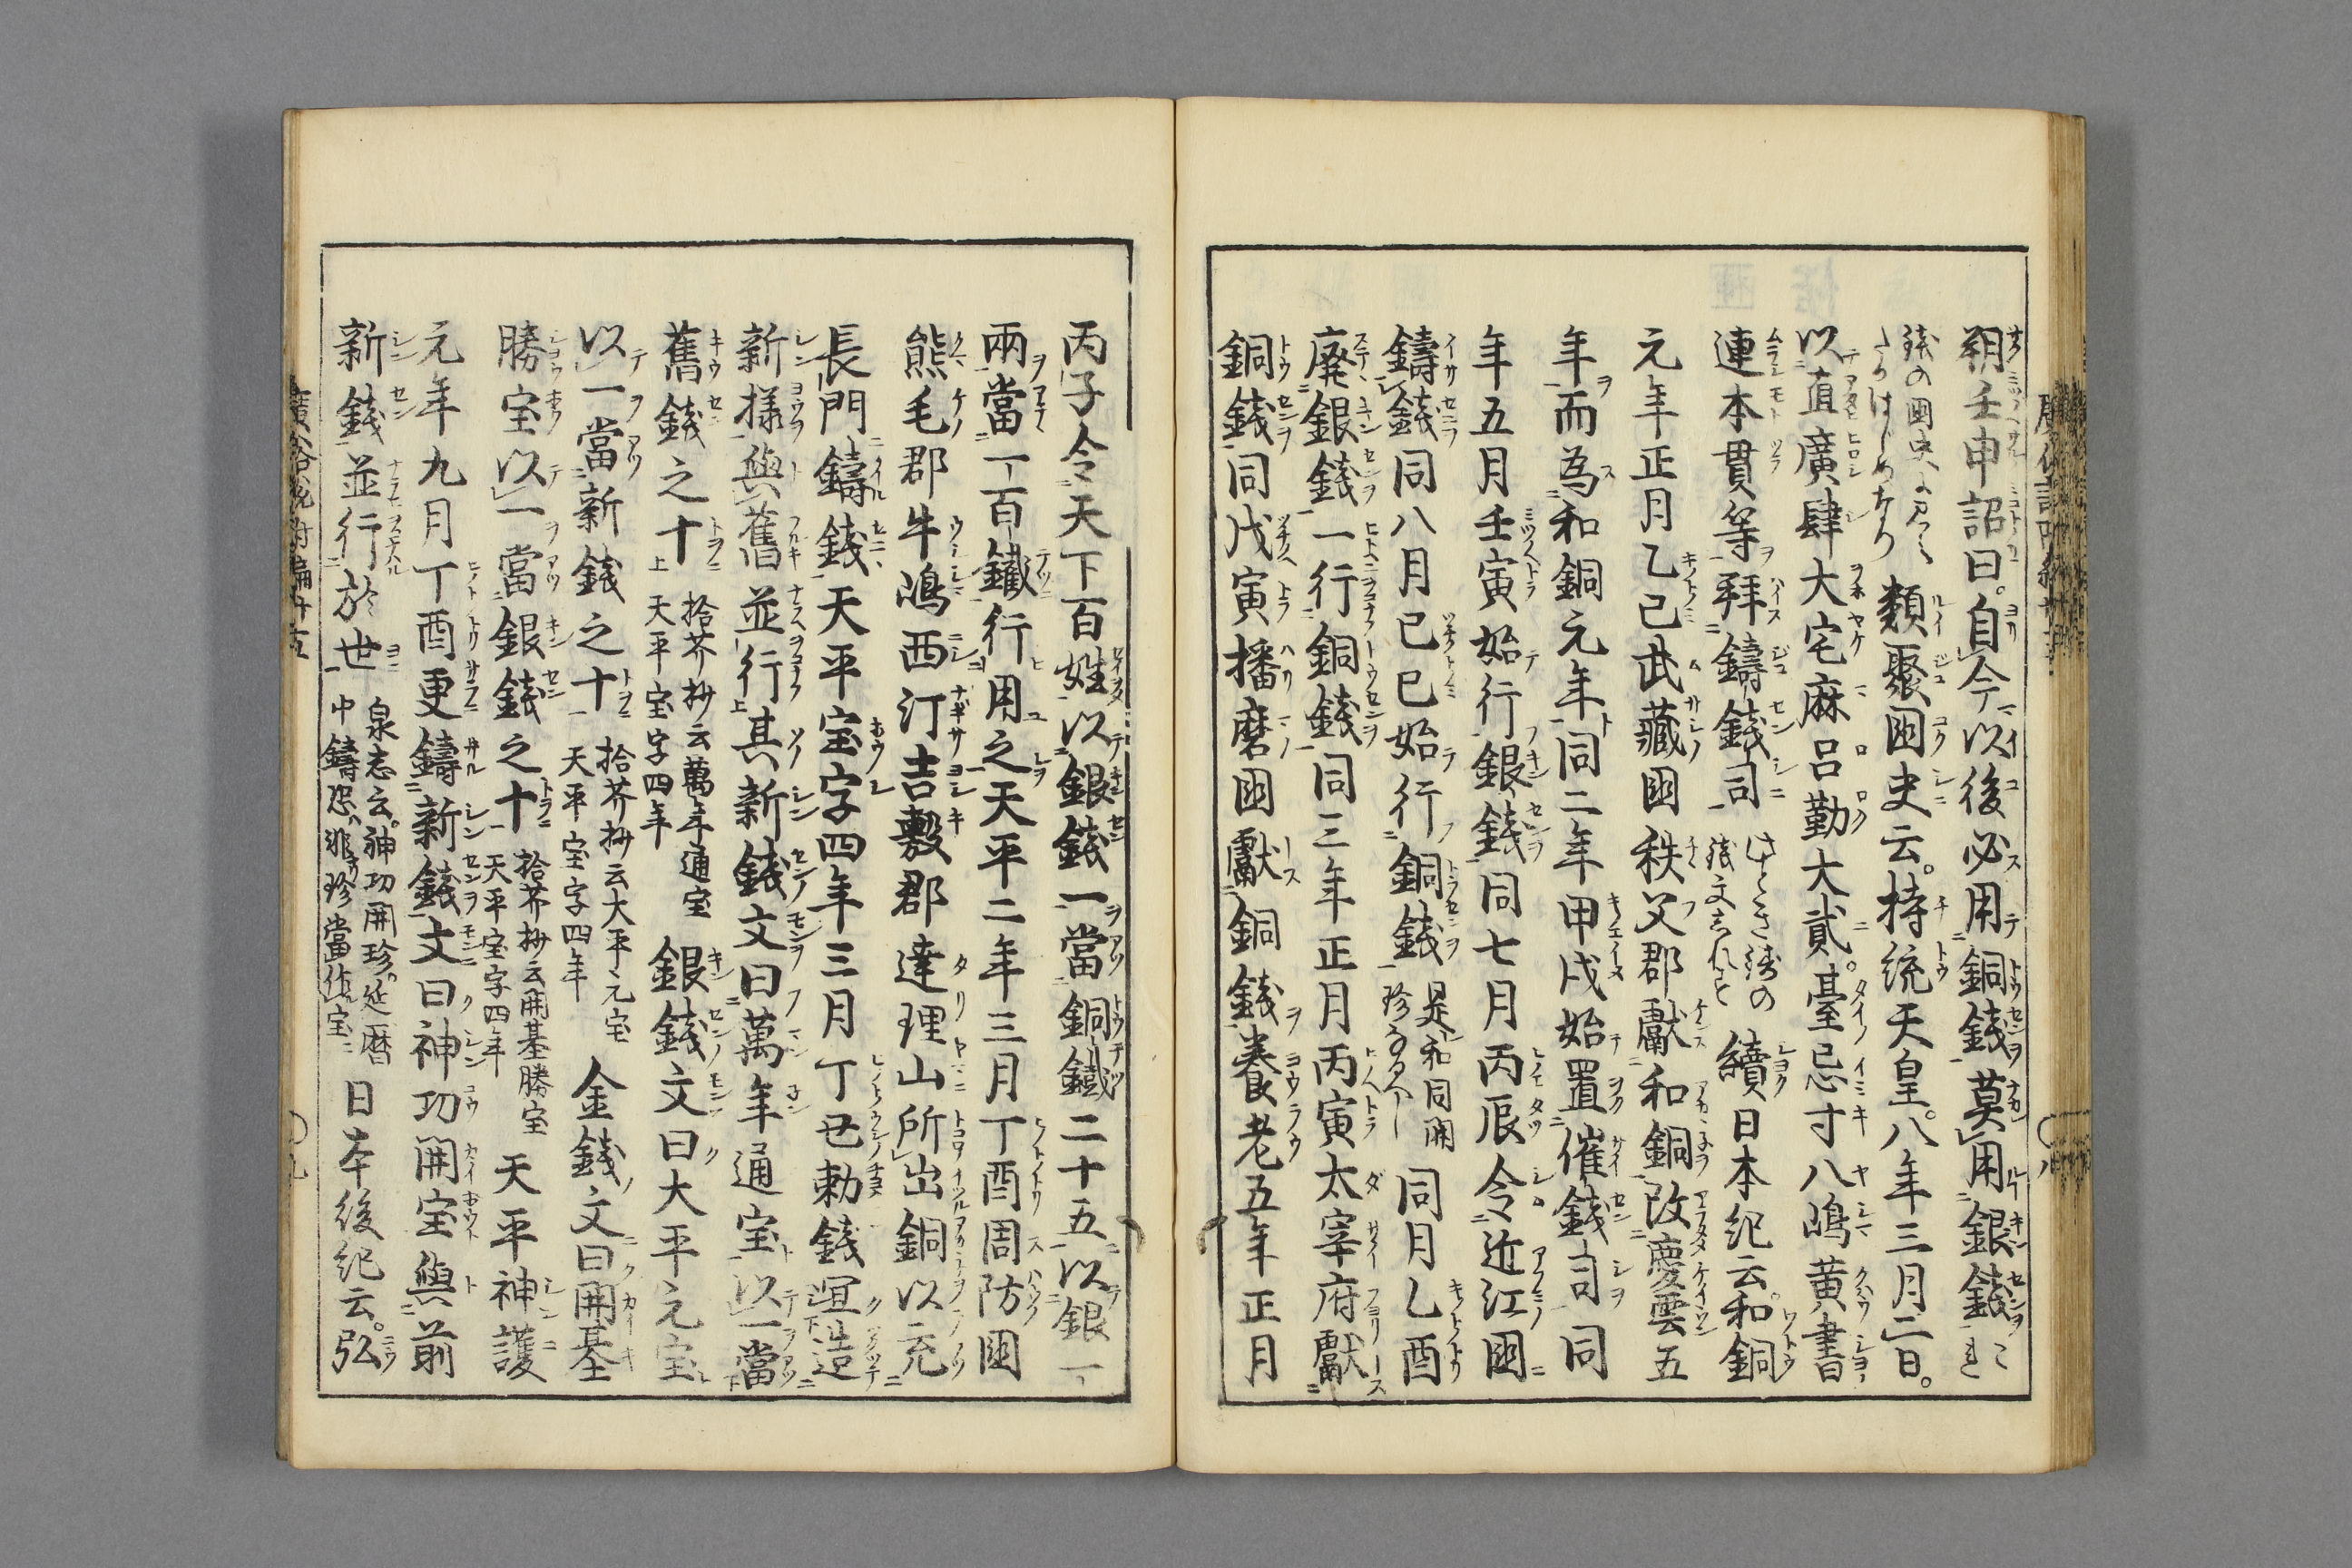 朔壬申詔曰。自今以後必用銅錢莫用銀錢これ
錢の國史に見へたるはじめなり 類聚國史云。持統天皇。八年三月二日。
以直廣肆大宅麻呂勤大貳。臺忌寸八嶋黃書
連本貫等拜鑄錢司 續日本紀云。和銅
元年正月乙巳武藏國秩父郡獻和銅改慶雲五
年而為和銅元年同二年甲戌始置催錢司同
年五月壬寅始行銀錢同七月丙辰令近江國
鑄錢同八月己巳始行銅錢 是和同開珍なるべし 同月乙酉
廢銀錢一行銅錢同三年正月丙寅太宰府獻
銅錢同戊寅播磨國獻銅錢養老五年正月
丙子令天下百姓以銀錢一當銅鐵二十五以銀一
兩當一百鐵行用之天平二年三月丁酉周防國
熊毛郡牛嶋西汀吉敷郡達理山所出銅以充
長門鑄錢天平宝字四年三月丁丑勅錢宜造
新樣與舊並行其新錢文曰萬年通宝以一當
舊錢之十 拾芥抄云萬年通宝天平宝字四年 銀錢文曰大平元宝
以一當新錢之十 拾芥抄云大平元宝天平宝字四年 金錢文曰開基
勝宝以一當銀錢之十 拾芥抄云開基勝宝天平宝字四年 天平神護
元年九月丁酉更鑄新錢文曰神功開宝與前
新錢並行於世 泉志云。神功開珍。延暦中鑄恐非珍當作宝 日本後紀云。弘